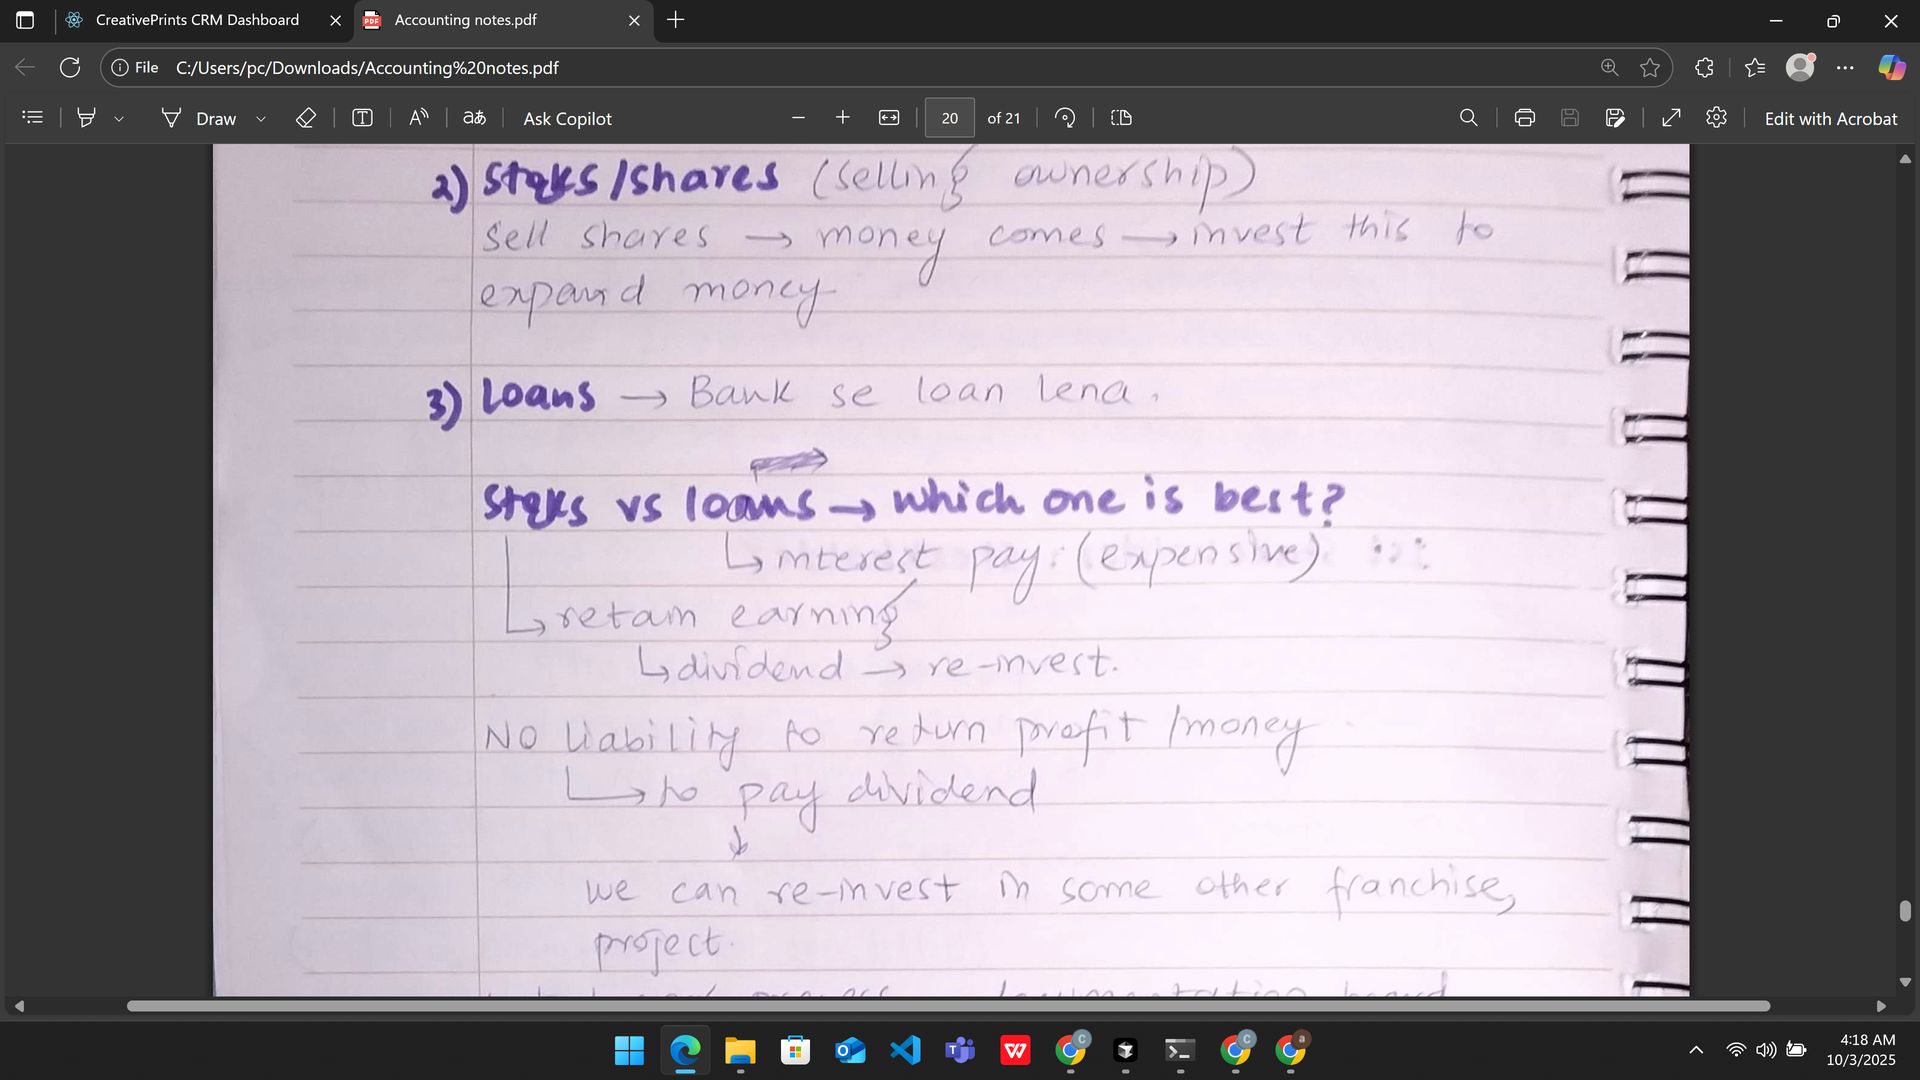 CreativePrints CRM Dashboard
Accounting notes.pdf
File C:/Users/pc/Downloads/Accounting%20notes.pdf
Draw
Ask Copilot
20 of 21
Edit with Acrobat
2) Stqks/shares (selling ownership)
Sell shares → money comes → invest this to
expand money
3) Loans → Bank se loan lena.
Stqks vs loans → which one is best?
↳ interest pay. (expensive)
↳ retain earning
↳ dividend → re-invest.
NO liability to return profit /money
↳ to pay dividend
↓
we can re-invest in some other franchise,
project.
4:18 AM
10/3/2025